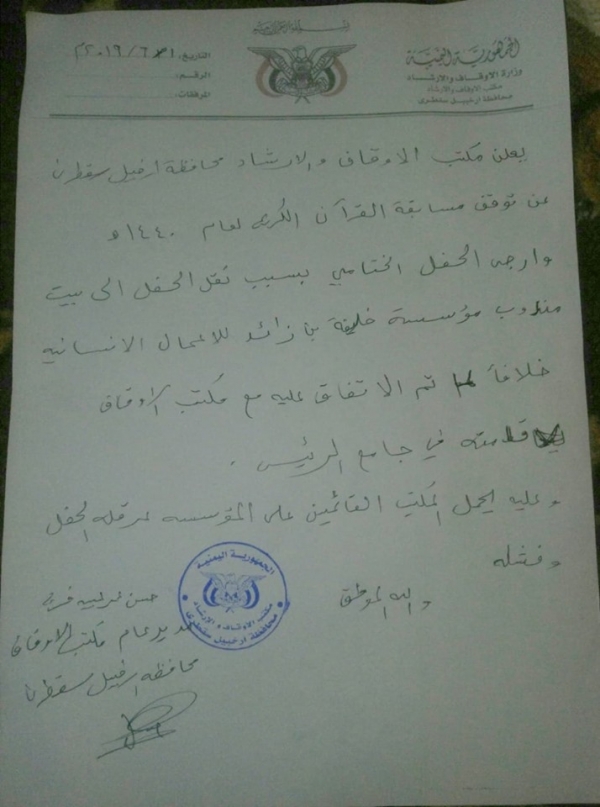 بسم الله الرحمن الرحيم
الجمهورية اليمنية
وزارة الاوقاف والارشاد
مكتب الاوقاف والارشاد
محافظة ارخبيل سقطرى
التاريخ: ٢٠١٩/٦/١م
الرقم:
المرفقات:
يعلن مكتب الاوقاف والارشاد محافظة ارخبيل سقطرى
عن توقف مسابقة القرآن الكريم لعام ١٤٤٠ه
وارجى الحفل الختامي بسبب نقل الحفل الى بيت
مندوب مؤسسة خليفة بن زائد للاعمال الانسانيه
خلافاً لما تم الاتفاق عليه مع مكتب الاوقاف
قامته في جامع الرئيس .
وعليه يحمل المكتب القائمين على المؤسسه عرقله الحفل
وفشله
والله الموفق
حسن
مدير عام مكتب الاوقاف
محافظه ارخبيل سقطرى
الجمهورية اليمنية
مكتب الاوقاف والارشاد
محافظة ارخبيل سقطرى